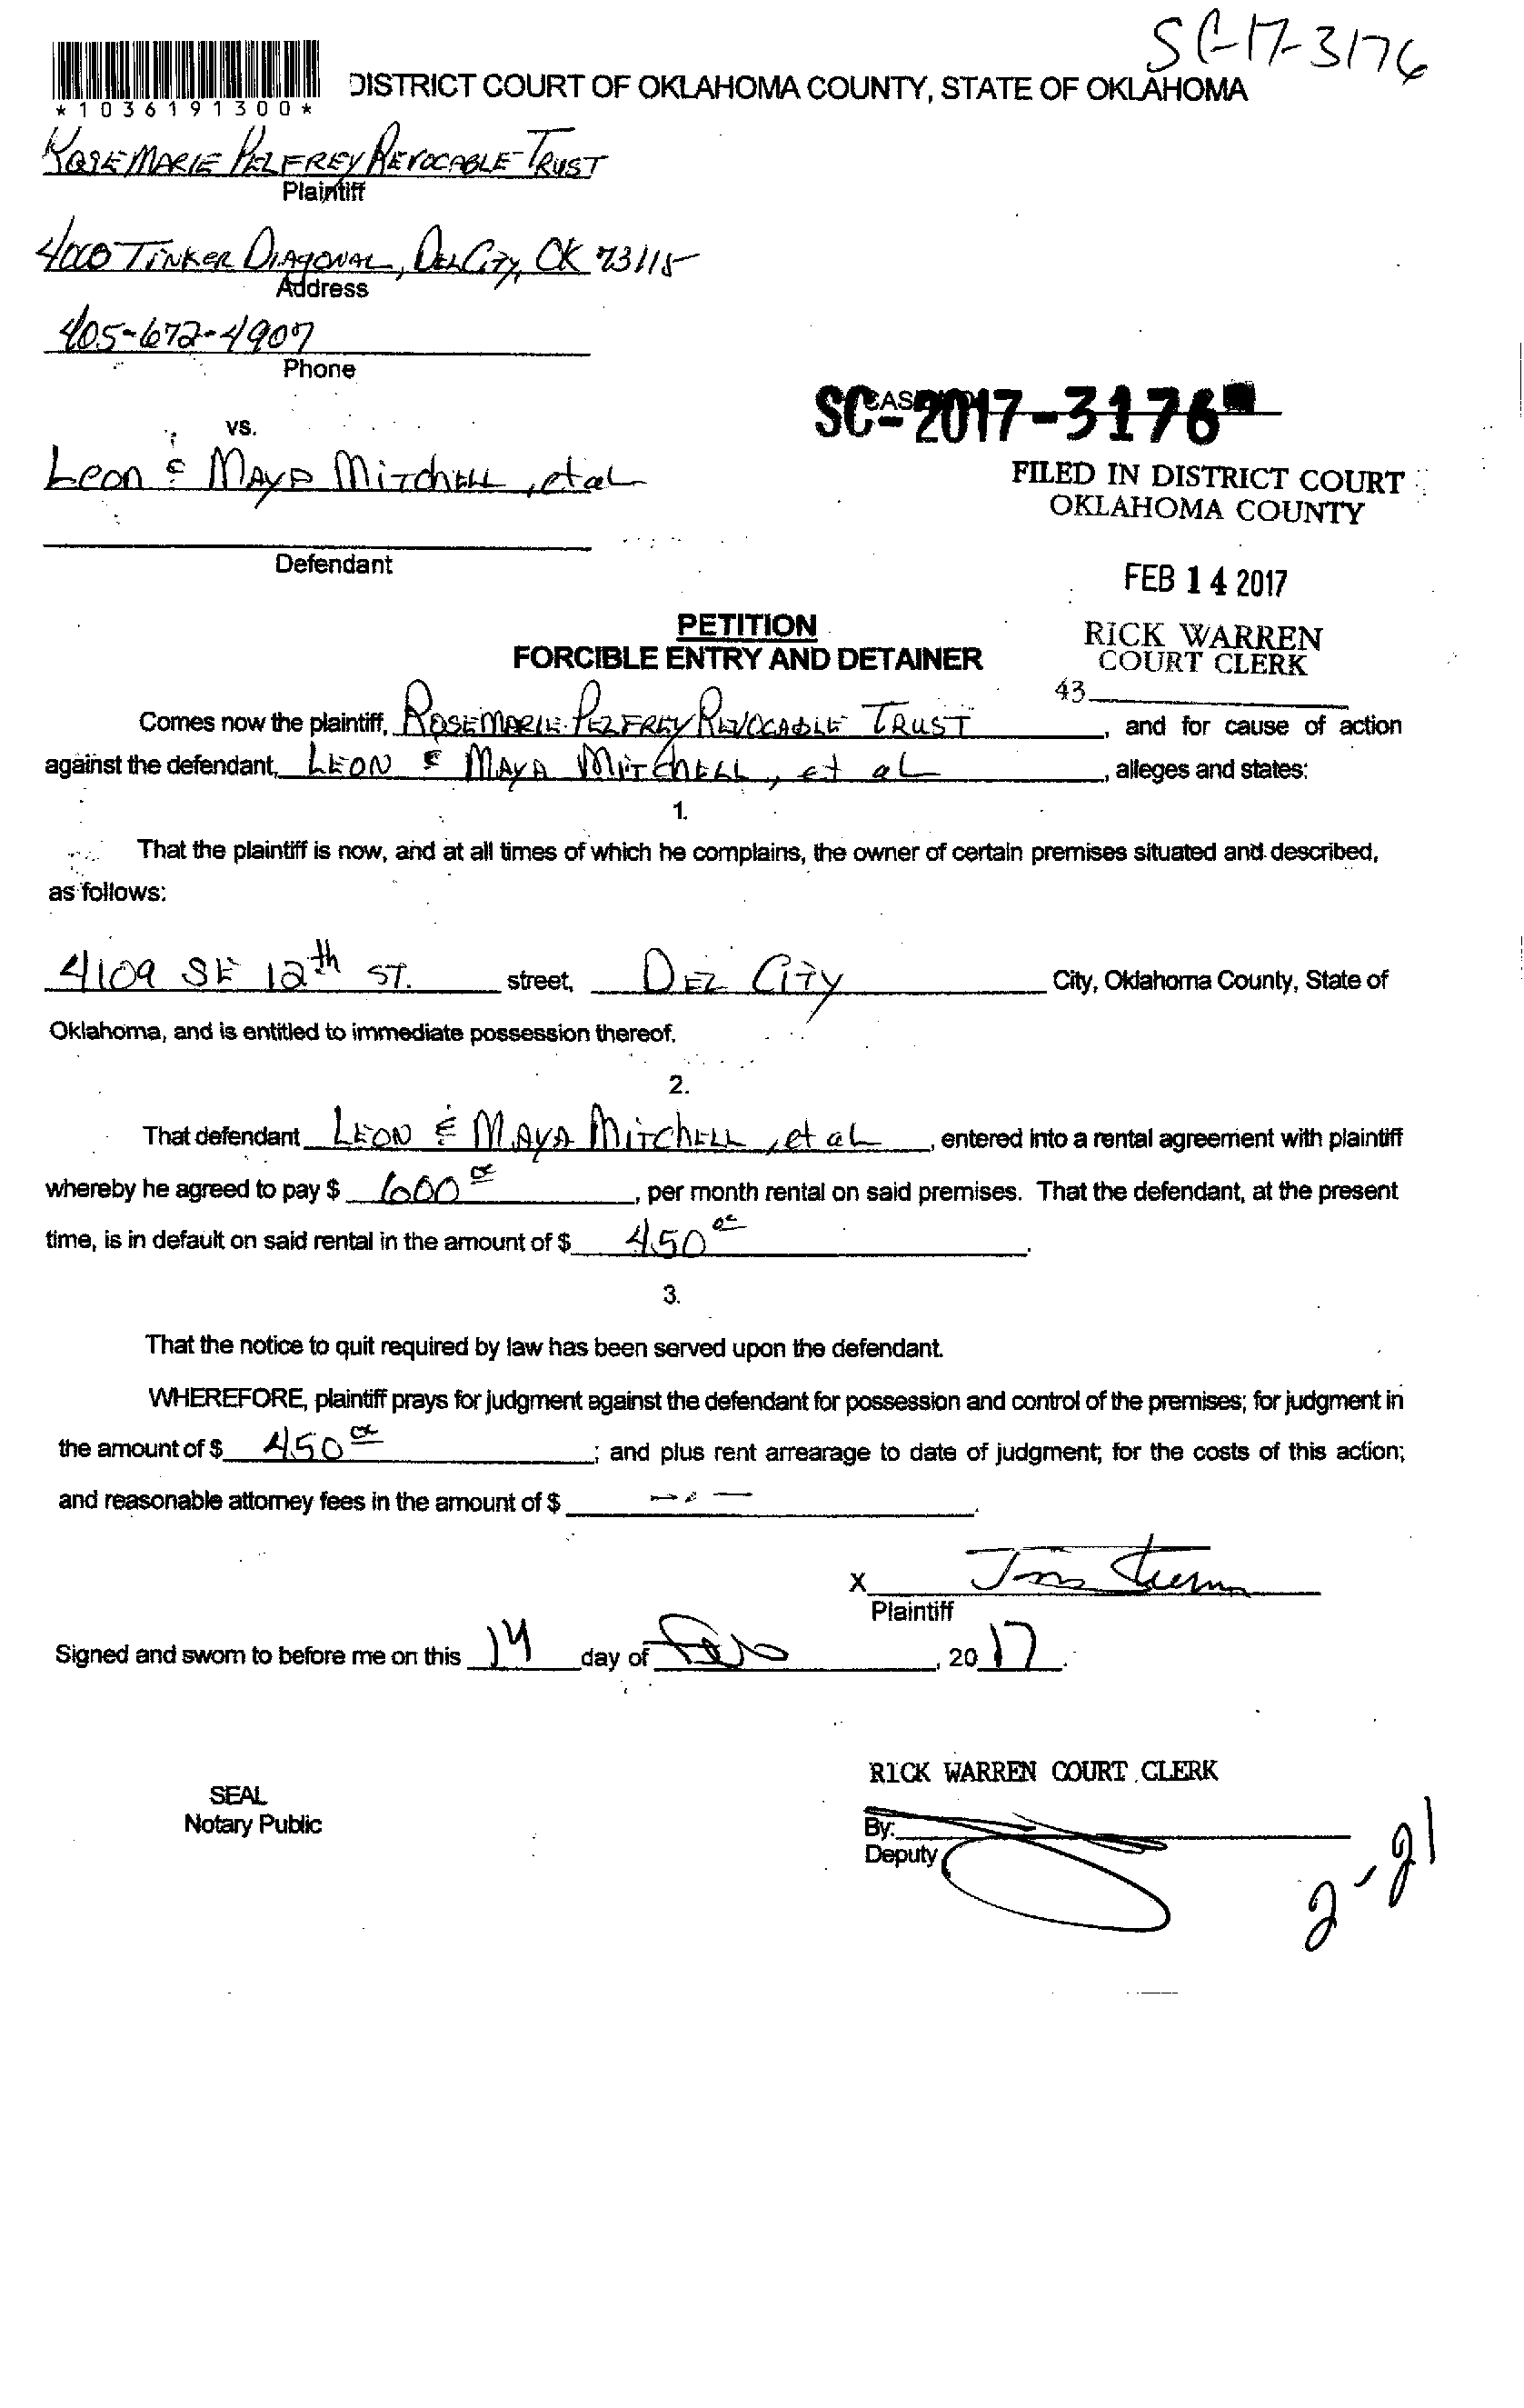 SC-17-3176
DISTRICT COURT OF OKLAHOMA COUNTY, STATE OF OKLAHOMA
*1036191300*
ROSEMARIE PELFREY REVOCABLE TRUST
Plaintiff
4000 TINKER DIAGONAL, DEL CITY, OK 73115
Address
405-672-4907
Phone
SC-2017-3176
vs.
Leon & MAYA MITCHELL, et al
FILED IN DISTRICT COURT
OKLAHOMA COUNTY
Defendant
FEB 14 2017
PETITION
FORCIBLE ENTRY AND DETAINER
RICK WARREN
COURT CLERK
43
Comes now the plaintiff, ROSEMARIE PELFREY REVOCABLE TRUST, and for cause of action
against the defendant, LEON & MAYA MITCHELL, et al, alleges and states:
1.
That the plaintiff is now, and at all times of which he complains, the owner of certain premises situated and described,
as follows:
4109 SE 12th ST. street, DEL CITY City, Oklahoma County, State of
Oklahoma, and is entitled to immediate possession thereof.
2.
That defendant LEON & MAYA MITCHELL, et al, entered into a rental agreement with plaintiff
whereby he agreed to pay $ 600 00, per month rental on said premises. That the defendant, at the present
time, is in default on said rental in the amount of $ 450 00.
3.
That the notice to quit required by law has been served upon the defendant.
WHEREFORE, plaintiff prays for judgment against the defendant for possession and control of the premises; for judgment in
the amount of $ 450 00; and plus rent arrearage to date of judgment; for the costs of this action;
and reasonable attorney fees in the amount of $
X
Plaintiff
Signed and sworn to before me on this 14 day of Feb, 2017.
RICK WARREN COURT CLERK
SEAL
Notary Public
By:
Deputy
2-21